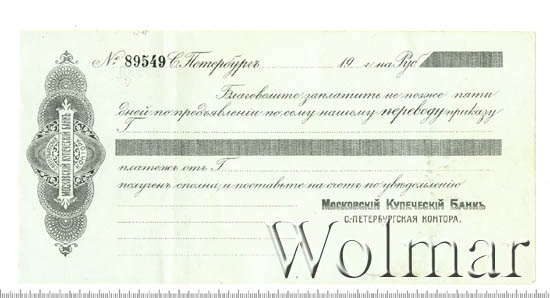 № 89549 С. Петербургъ 19 г. на Руб.
Благоволите заплатить не позже пяти
дней по предъявленіи по сему нашему переводу приказу
Г
платежъ отъ Г
получена сполна, и поставьте на счетъ по увѣдомленію
Московскій Купеческій Банкъ
С.-ПЕТЕРБУРГСКАЯ КОНТОРА.
МОСКОВСКІЙ КУПЕЧЕСКІЙ БАНКЪ
Wolmar